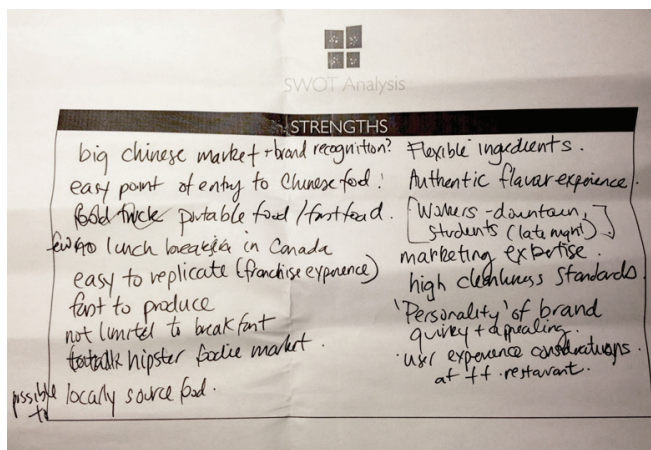 SWOT Analysis
STRENGTHS
big chinese market + brand recognition?
easy point of entry to Chinese food!
food truck portable food / fast food.
lunch break in Canada
easy to replicate (franchise experience)
fast to produce
not limited to breakfast
hipster foodie market.
possible to locally source food.
Flexible ingredients.
Authentic flavour experience.
[Workers - downtown,
students (late night)]
marketing expertise.
high cleanliness standards.
'Personality' of brand
quirky + appealing.
user experience considerations
at ff restaurant.